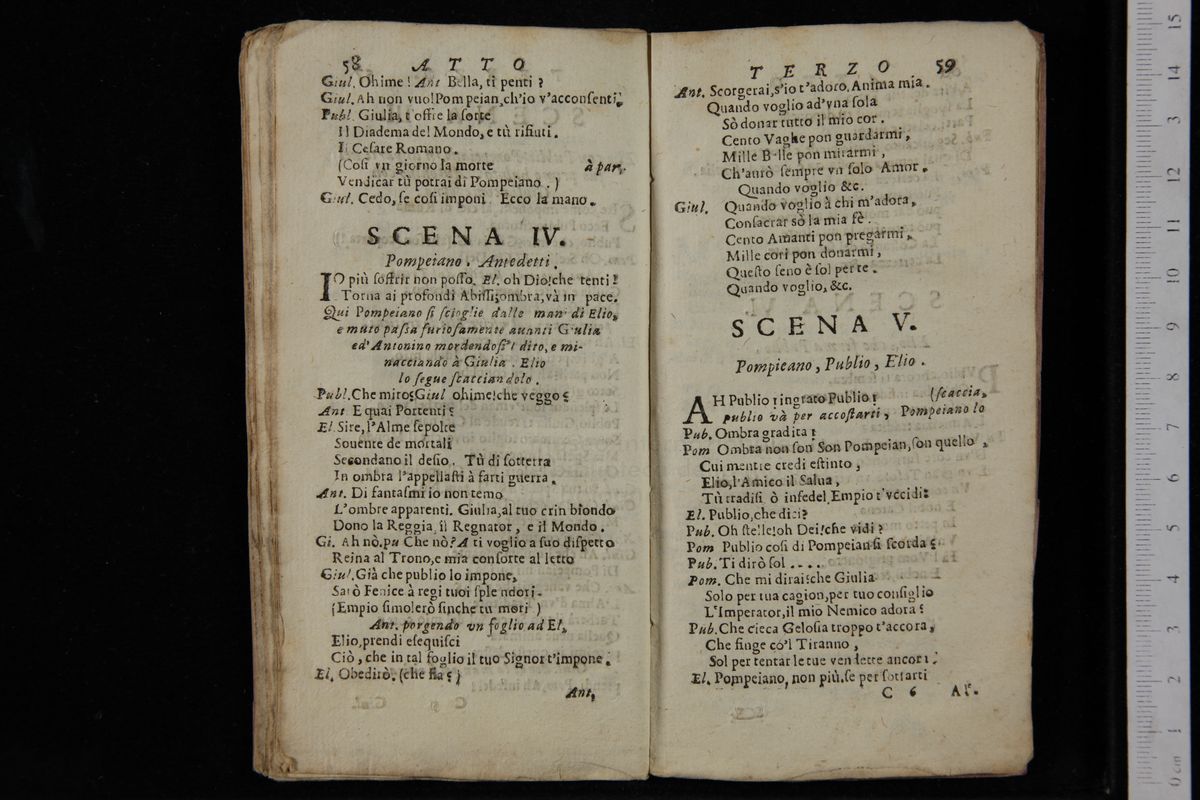 58 ATTO
Giul. Ohime! Ant Bella, ti penti?
Giul. Ah non vuol Pompeian, ch'io v'acconsenti.
Publ. Giulia, t'offre la sorte
Il Diadema del Mondo, e tù rifiuti.
Il Cesare Romano.
(Così vn giorno la morte à par.
Vendicar tù potrai di Pompeiano.)
Giul. Cedo, se così imponi. Ecco la mano.
SCENA IV.
Pompeiano. Antedetti.
IO più soffrir non posso. El. oh Dio! che tenti?
Torna ai profondi Abissi; ombra, và in pace.
Qui Pompeiano si scioglie dalle man' di Elio,
e muto passa furiosamente auanti Giulia
ed' Antonino mordendosi'l dito, e mi-
nacciando à Giulia. Elio
lo segue scacciandolo.
Publ. Che miro? Giul ohime! che veggo?
Ant E quai Portenti?
El Sire, l'Alme sepolte
Souente de mortali
Secondano il desio. Tù di sotterra
In ombra l'appellasti à farti guerra.
Ant. Di fantasmi io non temo
L'ombre apparenti. Giulia, al tuo crin biondo
Dono la Reggia, il Regnator, e il Mondo.
Gi. Ah nò. pu Che nò? A ti voglio a suo dispetto
Reina al Trono, e mia consorte al letto
Giul. Già che publio lo impone,
Sarò Fenice à regi tuoi splendori.
(Empio simolerò sinche tu mori)
Ant. porgendo vn foglio ad El.
Elio, prendi esequisci
Ciò, che in tal foglio il tuo Signor t'impone.
El. Obedirò. (che fia?)
Ant,
TERZO 59
Ant. Scorgerai, s'io t'adoro, Anima mia.
Quando voglio ad'vna sola
Sò donar tutto il mio cor.
Cento Vaghe pon guardarmi,
Mille Belle pon mirarmi,
Ch'aurò sempre vn solo Amor.
Quando voglio &c.
Giul. Quando voglio à chi m'adora,
Consacrar sò la mia fè.
Cento Amanti pon pregarmi,
Mille cori pon donarmi,
Questo seno è sol per te.
Quando voglio, &c.
SCENA V.
Pompieano, Publio, Elio.
AH Publio! ingrato Publio! (scaccia,
publio và per accostarsi, Pompeiano lo
Pub. Ombra gradita!
Pom Ombra non son Son Pompeian, son quello,
Cui mentre credi estinto,
Elio, l'Amico il Salua,
Tù tradisi ò infedel, Empio t'vccidi!
El. Publio, che dici?
Pub. Oh stelle! oh Dei! che vidi?
Pom Publio così di Pompeian si scorda?
Pub. Ti dirò sol....
Pom. Che mi dirai? che Giulia
Solo per tua cagion, per tuo consiglio
L'Imperator, il mio Nemico adora?
Pub. Che cieca Gelosia troppo t'accora,
Che finge co'l Tiranno,
Sol per tentar le tue vendette ancora.
El. Pompeiano, non più. se per sottarti
C 6